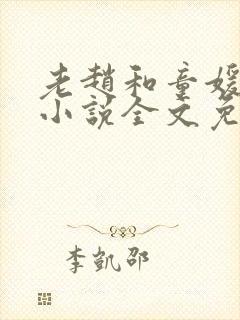 老趙和童媛
小說全文免
李凱邵